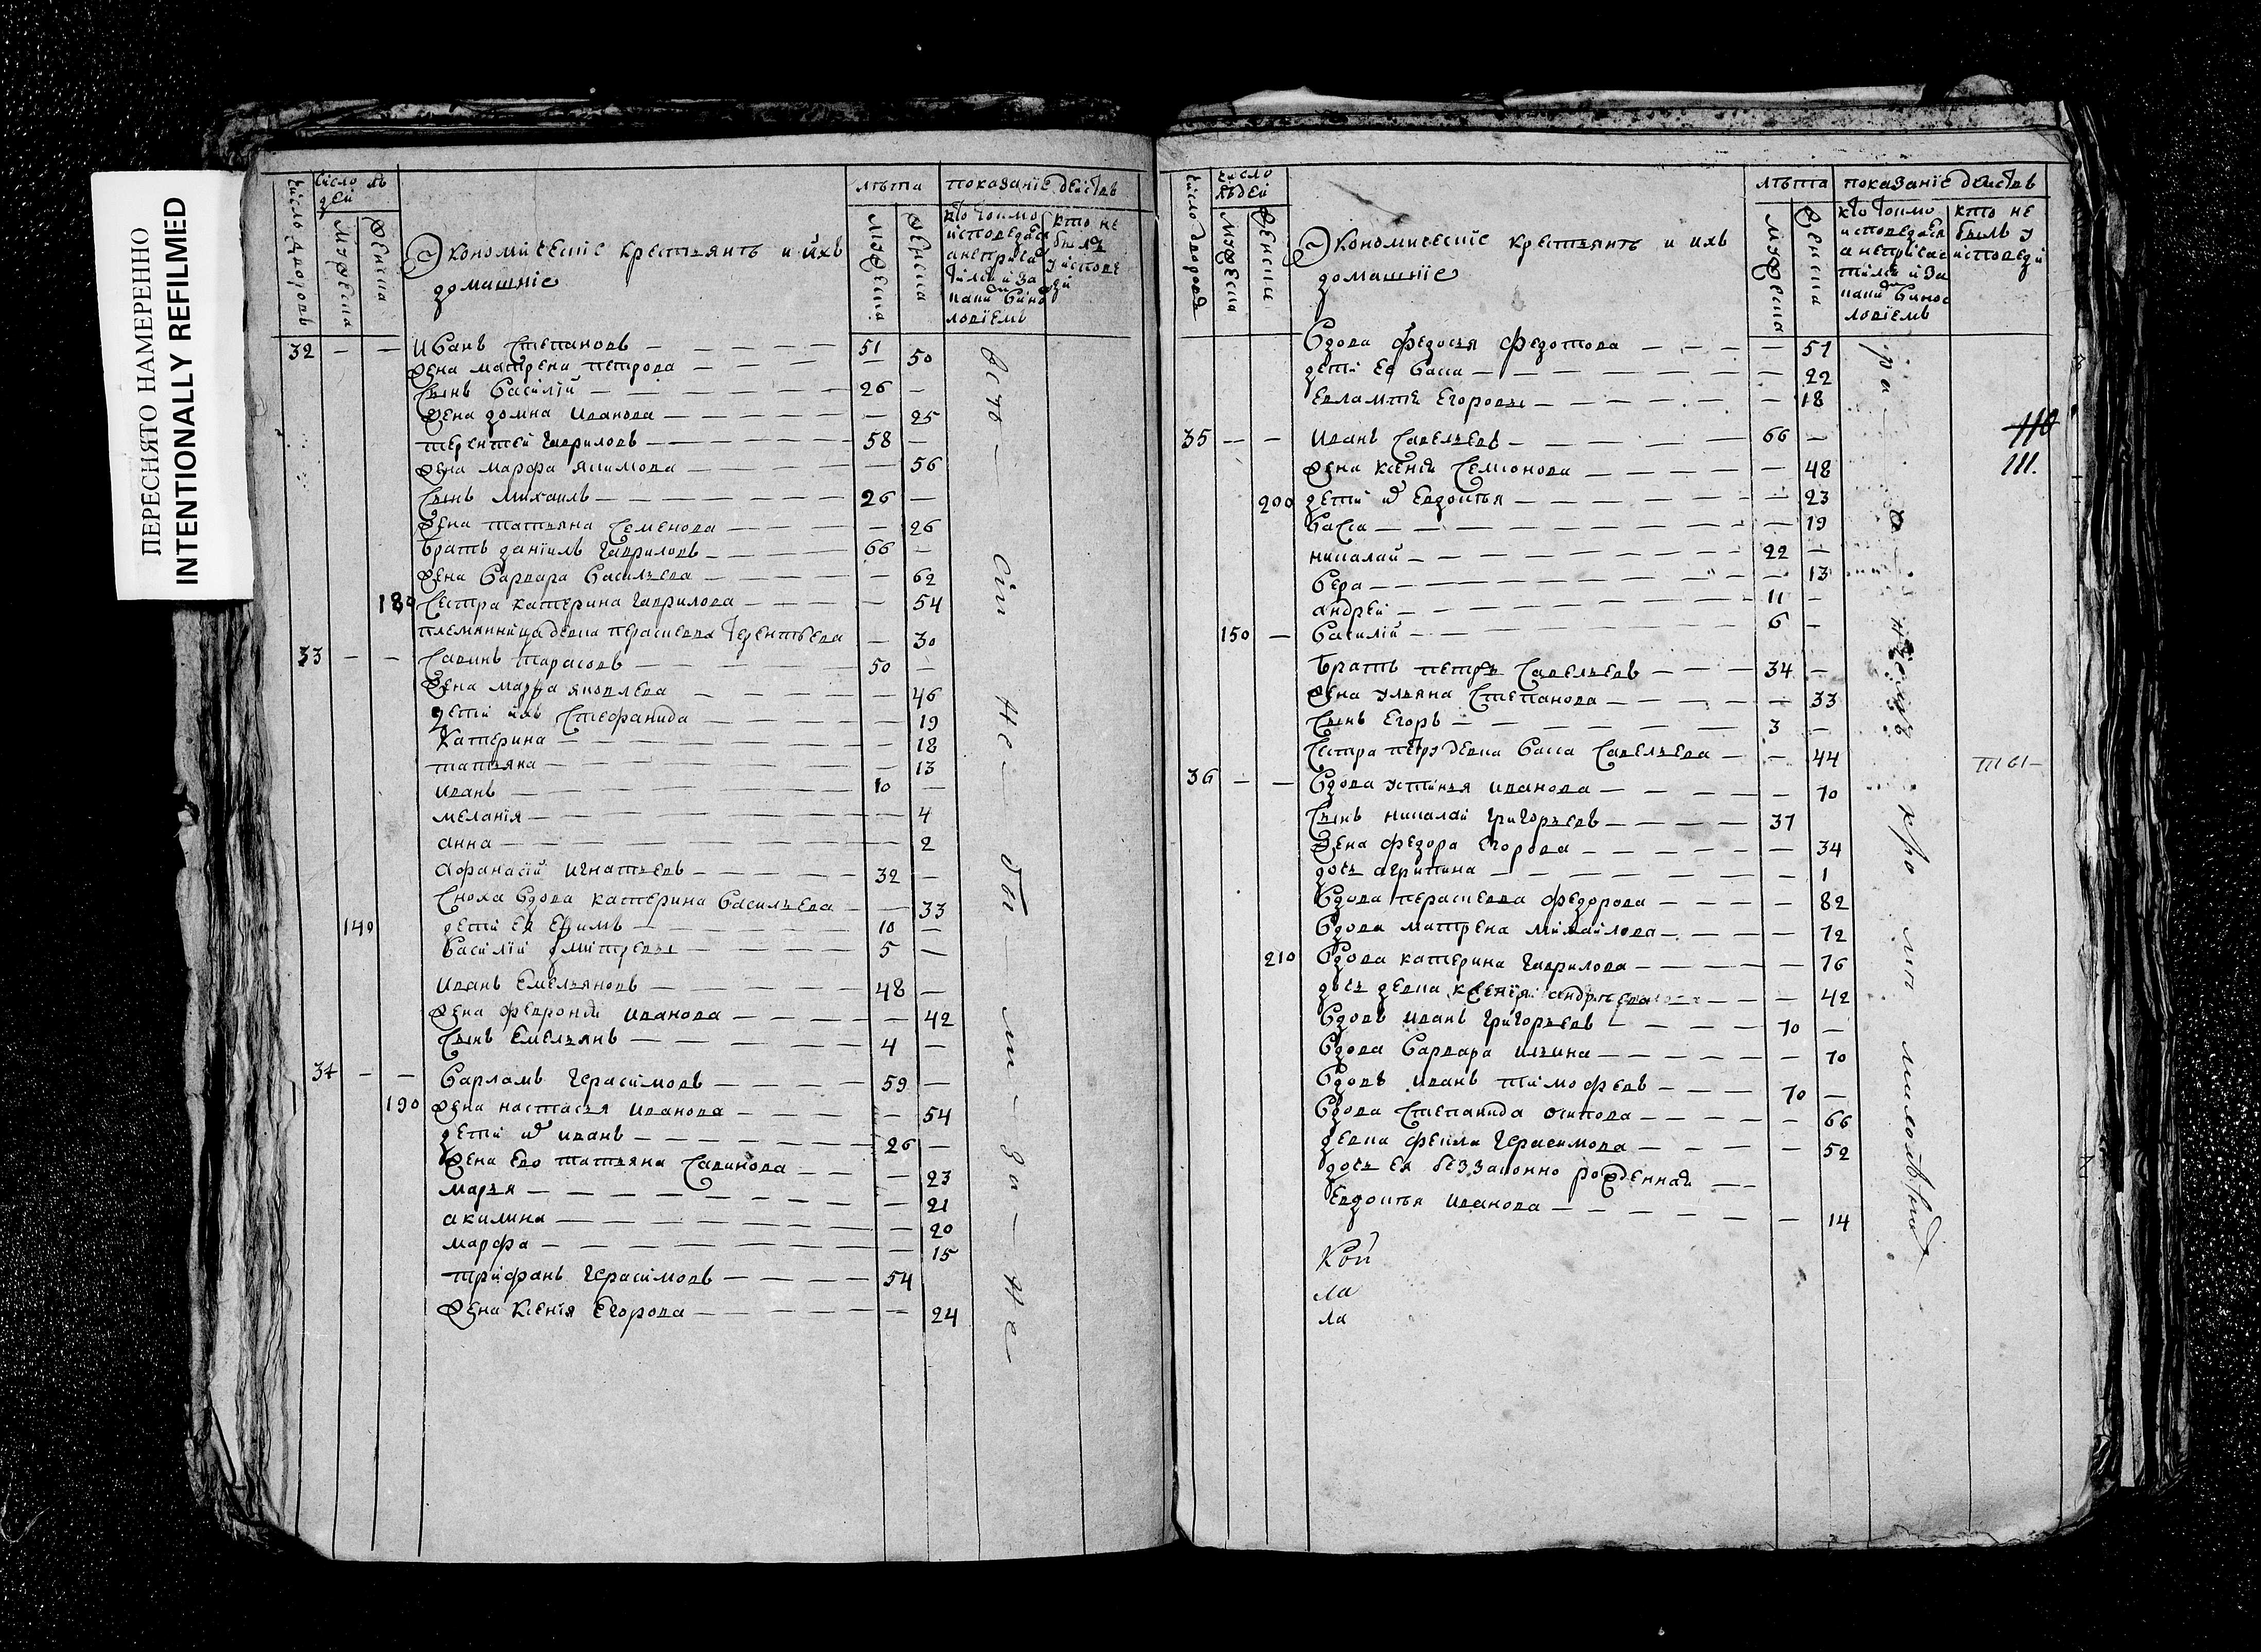 ПЕРЕСНЯТО НАМЕРЕННО
INTENTIONALLY REFILMED
число дворовъ
число людей
мужеска
женска
Экономическіе крестьянъ и ихъ
домашніе
лѣта
мужеска
женска
показаніе действ
кто токмо
исповедася
а не причас
тился и за
каки вино
словіемъ
кто не
былъ
у испове
ди
32 — — Иванъ Степановъ — 51
жена матрена петрова — 50
сынъ василій — 26 —
жена домна иванова — 25
терентей гавриловъ — 58 —
жена марфа якимова — 56
сынъ михаилъ — 26 —
жена татьяна семенова — 26
братъ даніилъ гавриловъ — 66 —
жена варвара васильева — 62
180 сестра катерина гаврилова — 54
племянница девка парасковья терентьева — 30
33 — — савинъ тарасовъ — 50 —
жена марфа яковлева — 46
дети ихъ стефанида — 19
катерина — 18
татьяна — 13
иванъ — 10 —
меланія — 4
анна — 2
афанасій игнатьевъ — 32 —
сноха вдова катерина васильева — 33
140 дети ея ефимъ — 10 —
василій дмитревы — 5 —
иванъ емельяновъ — 48 —
жена феврониія иванова — 42
сынъ емельянъ — 4 —
34 — — варламъ герасимовъ — 59 —
190 жена настасья иванова — 54
дети их иванъ — 26 —
жена ево татьяна савинова — 23
марья — 21
акилина — 20
марфа — 15
трифанъ герасимовъ — 54
жена ксенія егорова — 24
число дворовъ
число
людей
мужеска
женски
Экономическіе крестьянъ и ихъ
домашніе
лѣта
мужеска
женска
показаніе действ
кто токмо
исповедася
а не причас
тился и за
каки винос
ловіемъ
кто не
былъ у
исповеди
вдова федосья федотова — 51
дети ея васса — 22
евлампея егоровы — 18
110
111.
35 — — иванъ савельевъ — 66 —
жена ксенія семионова — 48
200 дети их евдокья — 23
васса — 19
николай — 22 —
вера — 13
андрей — 11 —
150 — василій — 6 —
братъ петръ савельевъ — 34 —
жена ульяна степанова — 33
сынъ егоръ — 3 —
сестра петру девка васса савельева — 44
36 — — вдова устинья иванова — 70
сынъ николай григорьевъ — 37
жена федора егорова — 34
дочь агрипина — 1
вдова парасковья федорова — 82
вдова матрена михайлова — 72
210 вдова катерина гаврилова — 76
дочь девка ксенія андреева — 42
вдовъ иванъ григорьевъ — 70 —
вдова варвара ильина — 70
вдовъ иванъ тимофеевъ — 70 —
вдова степанида осипова — 66
девка фекла герасимова — 52
дочь ея беззаконно рожденная —
евдокья иванова — 14
Кой
ла
ла